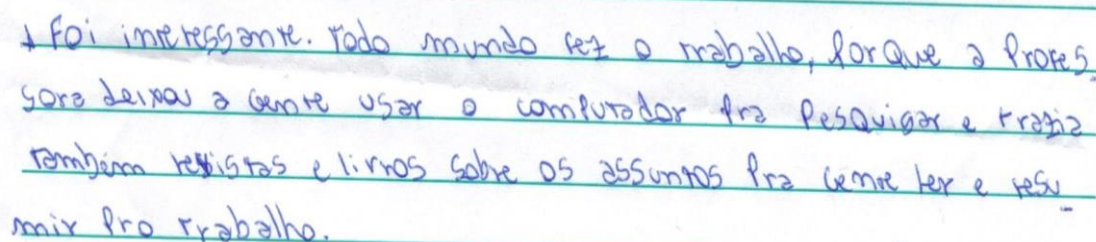 + Foi interessante. Todo mundo fez o trabalho, porque a profes
sora deixou a gente usar o computador pra pesquisar e trazia
também revistas e livros sobre os assuntos pra gente ler e resu_
mir pro trabalho.